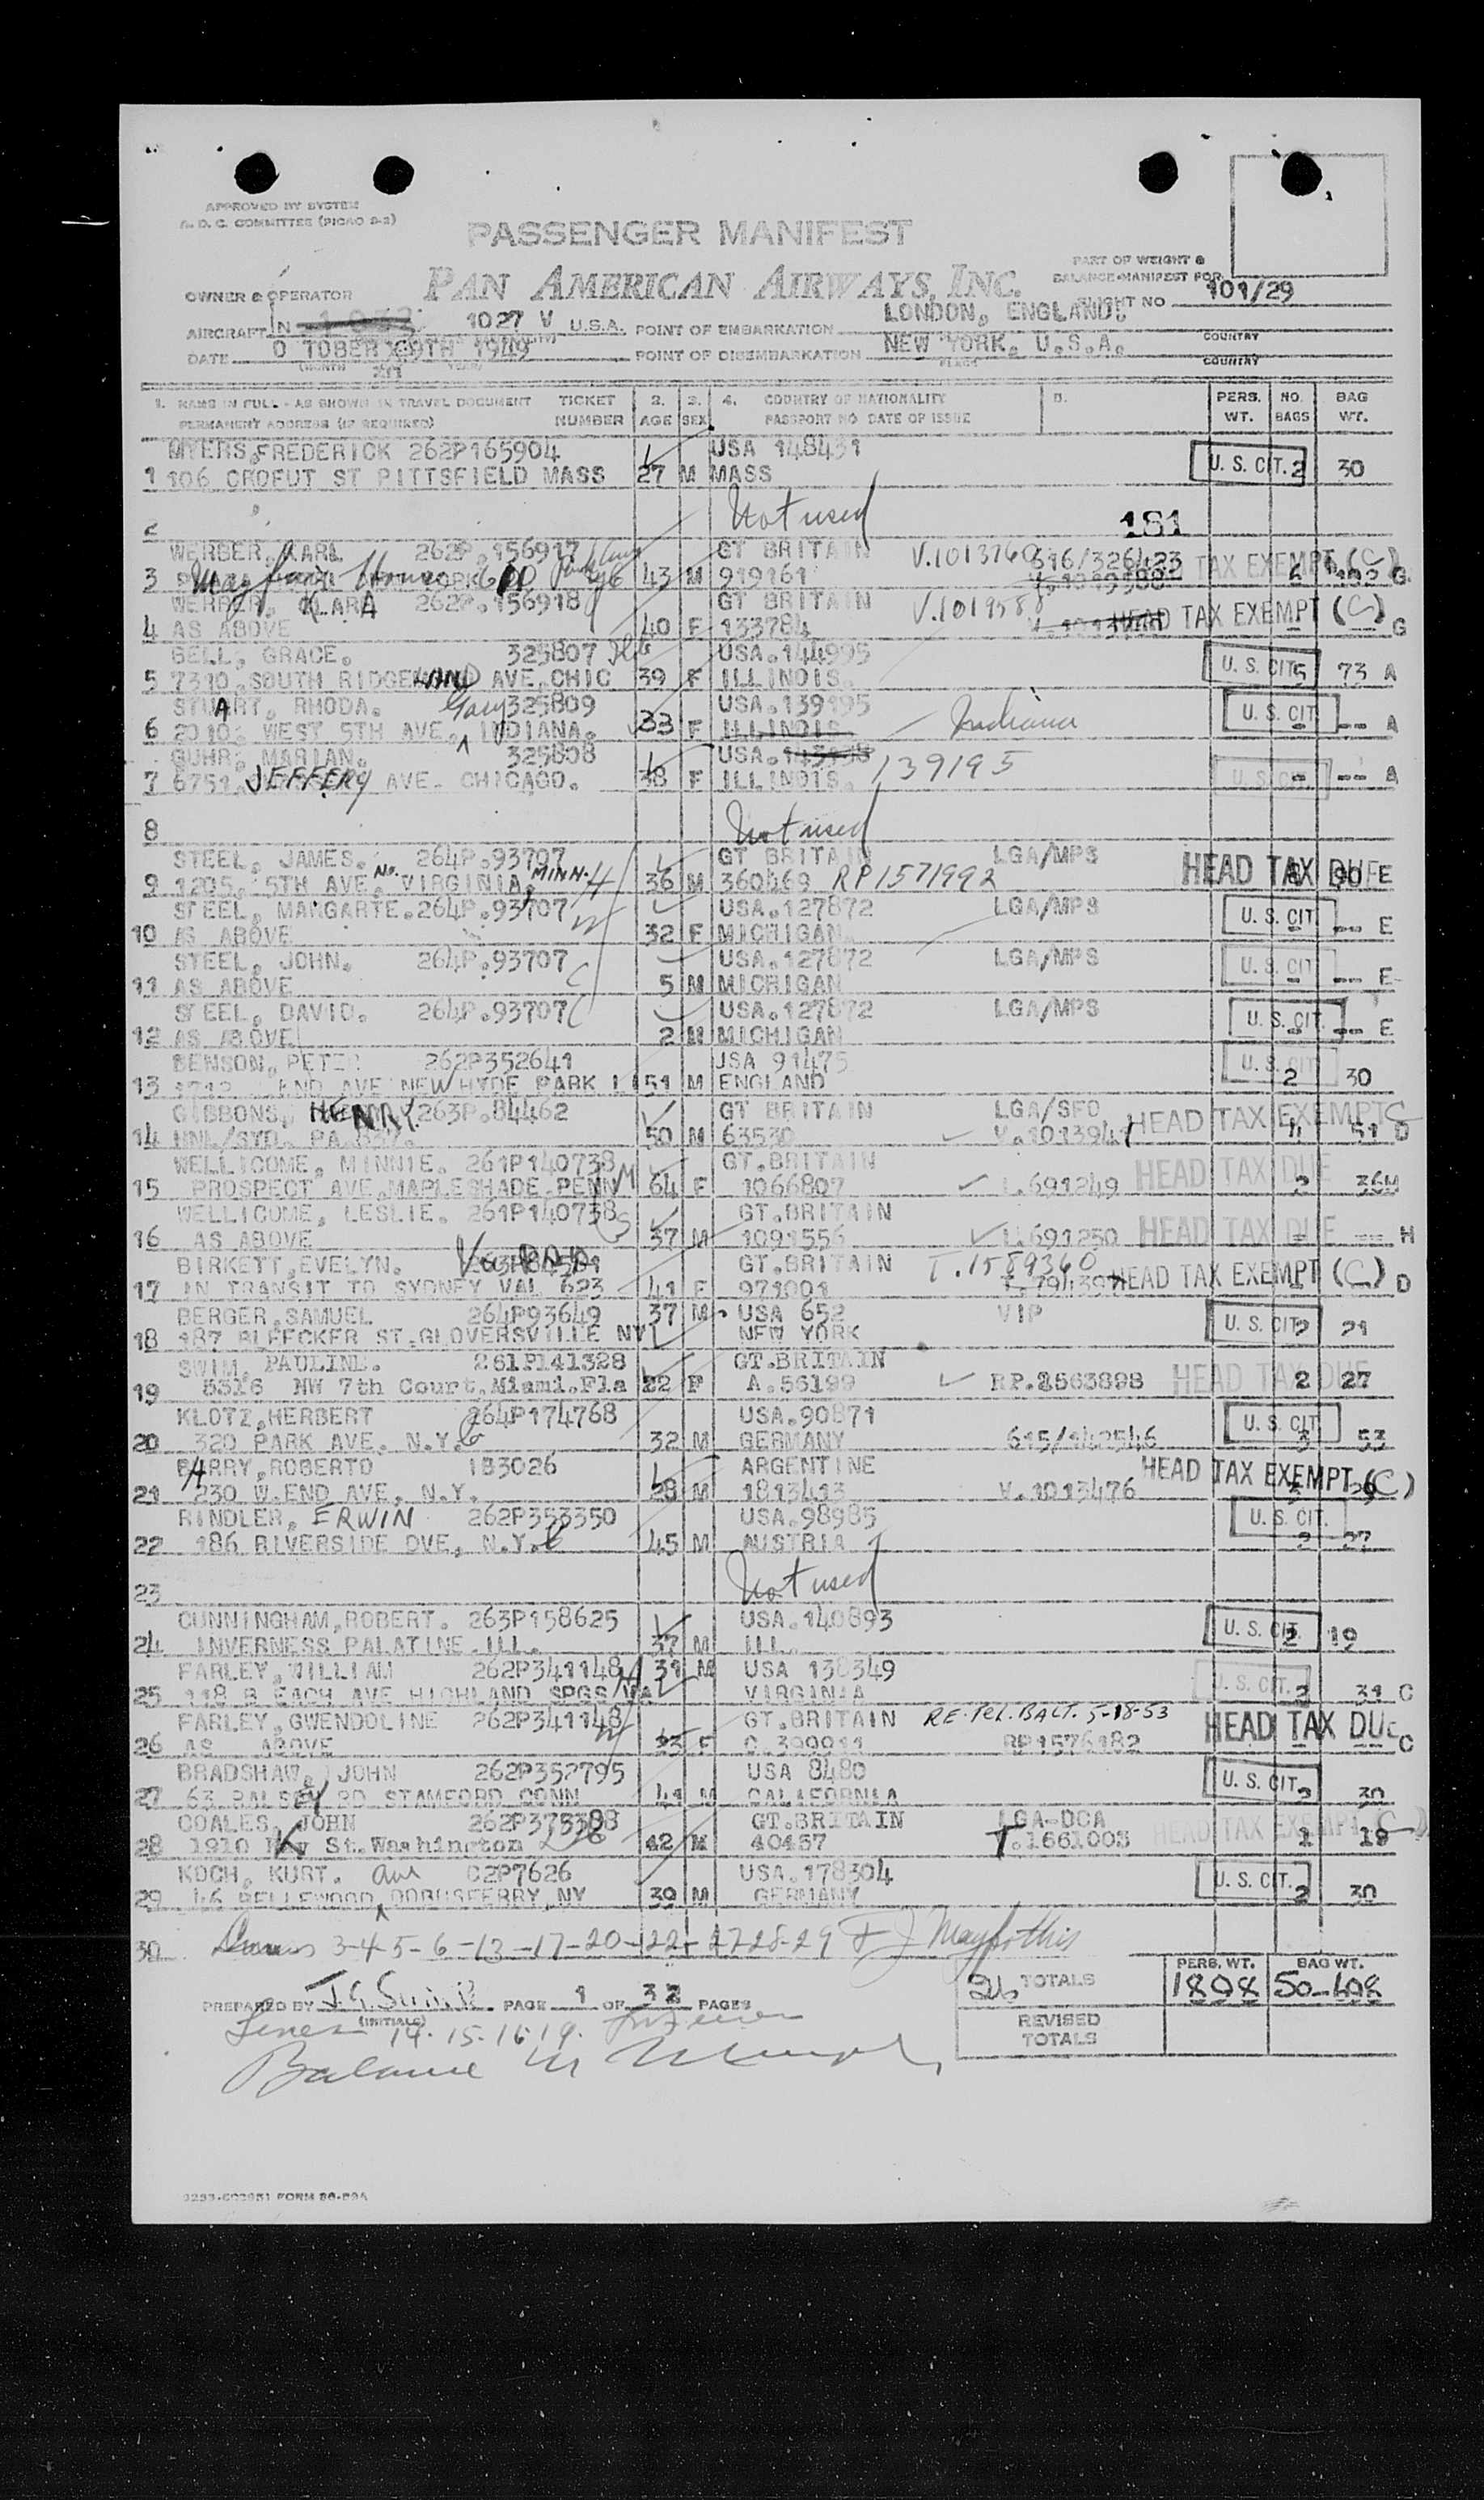 APPROVED BY SYSTEM
A. D. C. COMMITTEE (PICAO 2-2)
PASSENGER MANIFEST
PART OF WEIGHT &
BALANCE-MANIFEST FOR
PAN AMERICAN AIRWAYS, INC.
OWNER & OPERATOR
FLIGHT NO 101/29
AIRCRAFT N 1027 V U.S.A. POINT OF EMBARKATION LONDON, ENGLAND
COUNTRY
DATE O TOBER 29TH 1949 POINT OF DISEMBARKATION NEW YORK, U.S.A.
(MONTH YEAR) PLACE COUNTRY
1. NAME IN FULL - AS SHOWN IN TRAVEL DOCUMENT TICKET 2. 3. 4. COUNTRY OF NATIONALITY 5. PERS. NO. BAG
PERMANENT ADDRESS (IF REQUIRED) NUMBER AGE SEX PASSPORT NO DATE OF ISSUE WT. BAGS WT.
MYERS, FREDERICK 262P165904 USA 148431
1 106 CROFUT ST PITTSFIELD MASS 27 M MASS U. S. CIT. 2 30
Not used 181
2
WERBER, KARL 262P.156917 GT BRITAIN V.1013760 616/326423 TAX EXEMPT (C)
3 Mayfair House 610 Park 43 M 919161 G
WERBER, KLARA 262P.156918 GT BRITAIN V.1019588 HEAD TAX EXEMPT (C)
4 AS ABOVE 40 F 133784 G
BELL, GRACE. 325807 USA.144995
5 7310, SOUTH RIDGELAND AVE, CHIC 39 F ILLINOIS. U. S. CIT. 5 73 A
STUART, RHODA. Gary 325809 USA.139195
6 2010, WEST 5TH AVE, INDIANA. 33 F ILLINOIS Indiana U. S. CIT. - -- A
GUHR, MARIAN. 325808 USA.
7 6751, JEFFERY AVE. CHICAGO. 38 F ILLINOIS. 139195 U. S. CIT. - -- A
8 Not used
STEEL, JAMES. 264P.93707 GT BRITAIN LGA/MPS
9 1205, 5TH AVE, No. VIRGINIA, MINN. H 36 M 360469 RP1571992 HEAD TAX DUE 90 E
STEEL, MARGARTE. 264P.93707 W USA.127872 LGA/MPS
10 AS ABOVE 32 F MICHIGAN U. S. CIT. - -- E
STEEL, JOHN. 264P.93707 USA.127872 LGA/MPS
11 AS ABOVE C 5 M MICHIGAN U. S. CIT - -- E
STEEL, DAVID. 264P.93707 C USA.127872 LGA/MPS
12 AS ABOVE 2 M MICHIGAN U. S. CIT. - -- E
BENSON, PETER 262P352641 USA 91475
13 END AVE NEW HYDE PARK LI 51 M ENGLAND U. S. CIT 2 30
GIBBONS, HENRY 263P.84462 GT BRITAIN LGA/SFO HEAD TAX EXEMPT C
14 50 M 63530 V.1013941 4 51 D
WELLICOME, MINNIE. 261P140738 M GT.BRITAIN HEAD TAX DUE
15 PROSPECT AVE, MAPLESHADE PENN 64 F 1066807 I.691249 2 36H
WELLICOME, LESLIE. 261P140738 S GT.BRITAIN
16 AS ABOVE 37 M 1091556 I.691250 HEAD TAX DUE - -- H
BIRKETT, EVELYN. GT.BRITAIN T.1589360
17 IN TRANSIT TO SYDNEY VAL 623 41 F 971001 HEAD TAX EXEMPT (C) D
BERGER, SAMUEL 264P93649 37 M USA 652 VIP
18 187 BLEECKER ST. GLOVERSVILLE NY NEW YORK U. S. CIT. 2 21
SWIM, PAULINE. 261P141328 GT.BRITAIN HEAD TAX DUE
19 5316 NW 7th Court, Miami, Fla 22 F A.56199 RP.1563898 2 27
KLOTZ, HERBERT 264P174768 USA.90871
20 320 PARK AVE. N.Y.C 32 M GERMANY 615/142546 U. S. CIT 3 53
BARRY, ROBERTO 183026 ARGENTINE HEAD TAX EXEMPT (C)
21 230 W. END AVE. N.Y. 28 M 1813413 V.1013476
RINDLER, ERWIN 262P353350 USA.98985
22 186 RIVERSIDE DVE, N.Y.C 45 M AUSTRIA U. S. CIT. 2 27
23 Not used
CUNNINGHAM, ROBERT. 263P158625 USA.140893
24 INVERNESS PALATINE ILL. 37 M ILL. U. S. CIT. 2 19
FARLEY, WILLIAM 262P341148 H 31 M USA 138349
25 118 B EACH AVE HIGHLAND SPGS VA VIRGINIA U. S. CIT. 2 31 C
FARLEY, GWENDOLINE 262P341148 W GT.BRITAIN RE. TEL. BALT. 5-18-53
26 AS ABOVE 23 F C.390911 RP1576182 HEAD TAX DUE C
BRADSHAW, JOHN 262P352795 USA 8480
27 63 HALSEY RD STAMFORD CONN 41 M CALIFORNIA U. S. CIT. 2 30
COALES, JOHN GT.BRITAIN LGA-DCA
28 1910 K St. Washington 42 M 40457 T.1661005 HEAD TAX EXEMPT (C) 1 19
KOCH, KURT. ave 02P7626 USA.178304
29 46 BELLEWOOD, DOBBSFERRY, NY 39 M GERMANY U. S. CIT. 2 30
30 3-4-5-6-13-17-20-22-27-28-29
PREPARED BY PAGE 1 OF 32 PAGES
(INITIALS)
26 TOTALS PERS. WT. 1898 BAG WT. 50-498
REVISED
TOTALS
Lines 14-15-16-19.
Balance